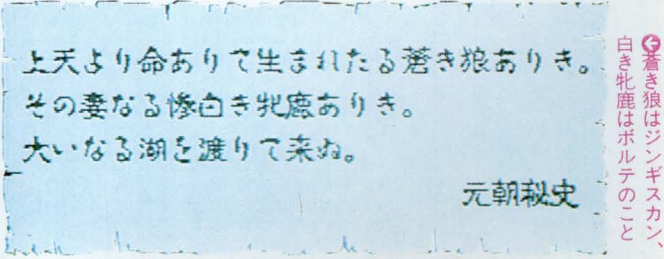 上天より命ありて生まれたる蒼き狼ありき。
その妻なる惨白き牝鹿ありき。
大いなる湖を渡りて来ぬ。
元朝秘史
蒼き狼はジンギスカン、
白き牝鹿はボルテのこと